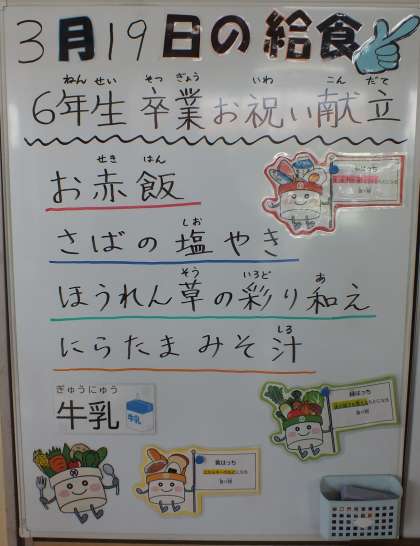 3月19日の給食
ねん せい そつ ぎょう いわ こん だて
6年生 卒業お祝い献立
せき はん
お赤飯
しお
さばの塩やき
そう いろど あ
ほうれん草の彩り和え
しる
にらたまみそ汁
ぎゅうにゅう
牛乳
牛乳
黄はっち
緑はっち